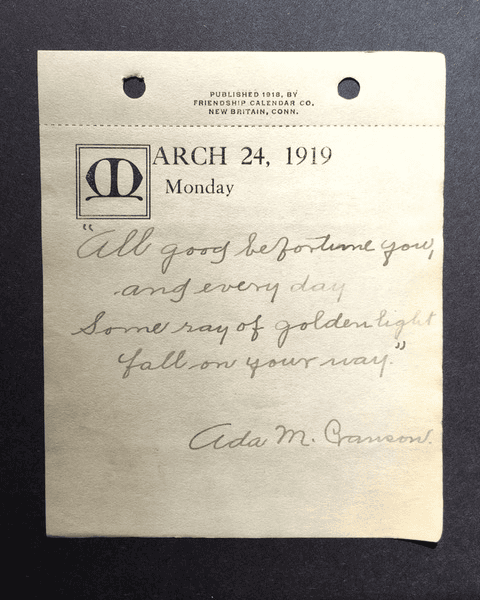 PUBLISHED 1918, BY
FRIENDSHIP CALENDAR CO.
NEW BRITAIN, CONN.
MARCH 24, 1919
Monday
"All good befortune you,
and every day
Some ray of golden light
fall on your way."
Ada M. Cranson.